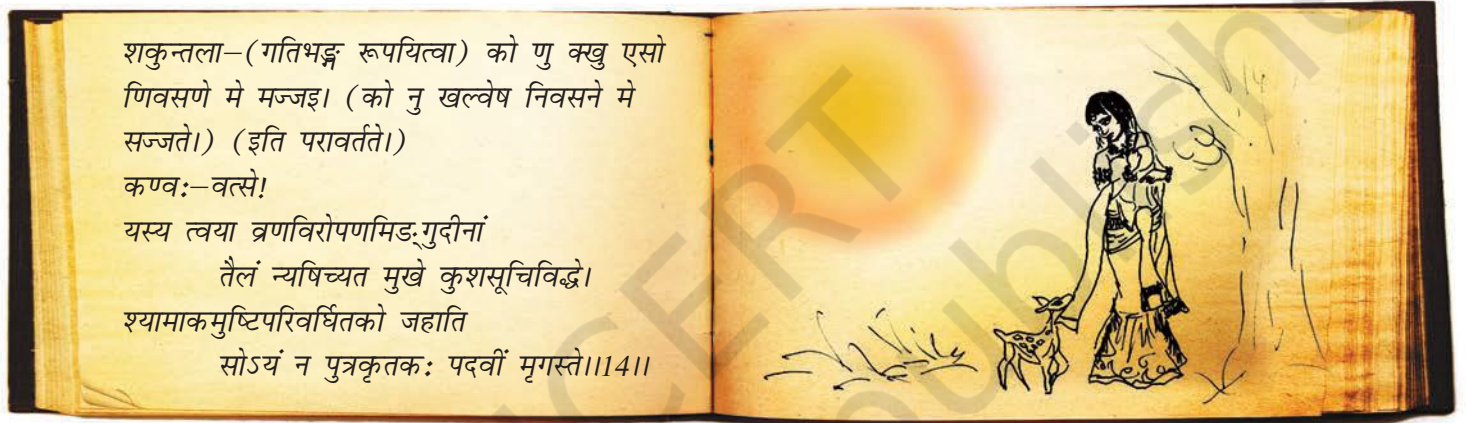 शकुन्तला–(गतिभङ्ग रूपयित्वा) को णु क्खु एसो
णिवसणे मे मज्जइ। (को नु खल्वेष निवसने मे
सज्जते।) (इति परावर्तते।)
कण्व:–वत्से!
यस्य त्वया व्रणविरोपणमिङ्गुदीनां
तैलं न्यषिच्यत मुखे कुशसूचिविद्धे।
श्यामाकमुष्टिपरिवर्धितको जहाति
सोऽयं न पुत्रकृतक: पदवीं मृगस्ते।।14।।